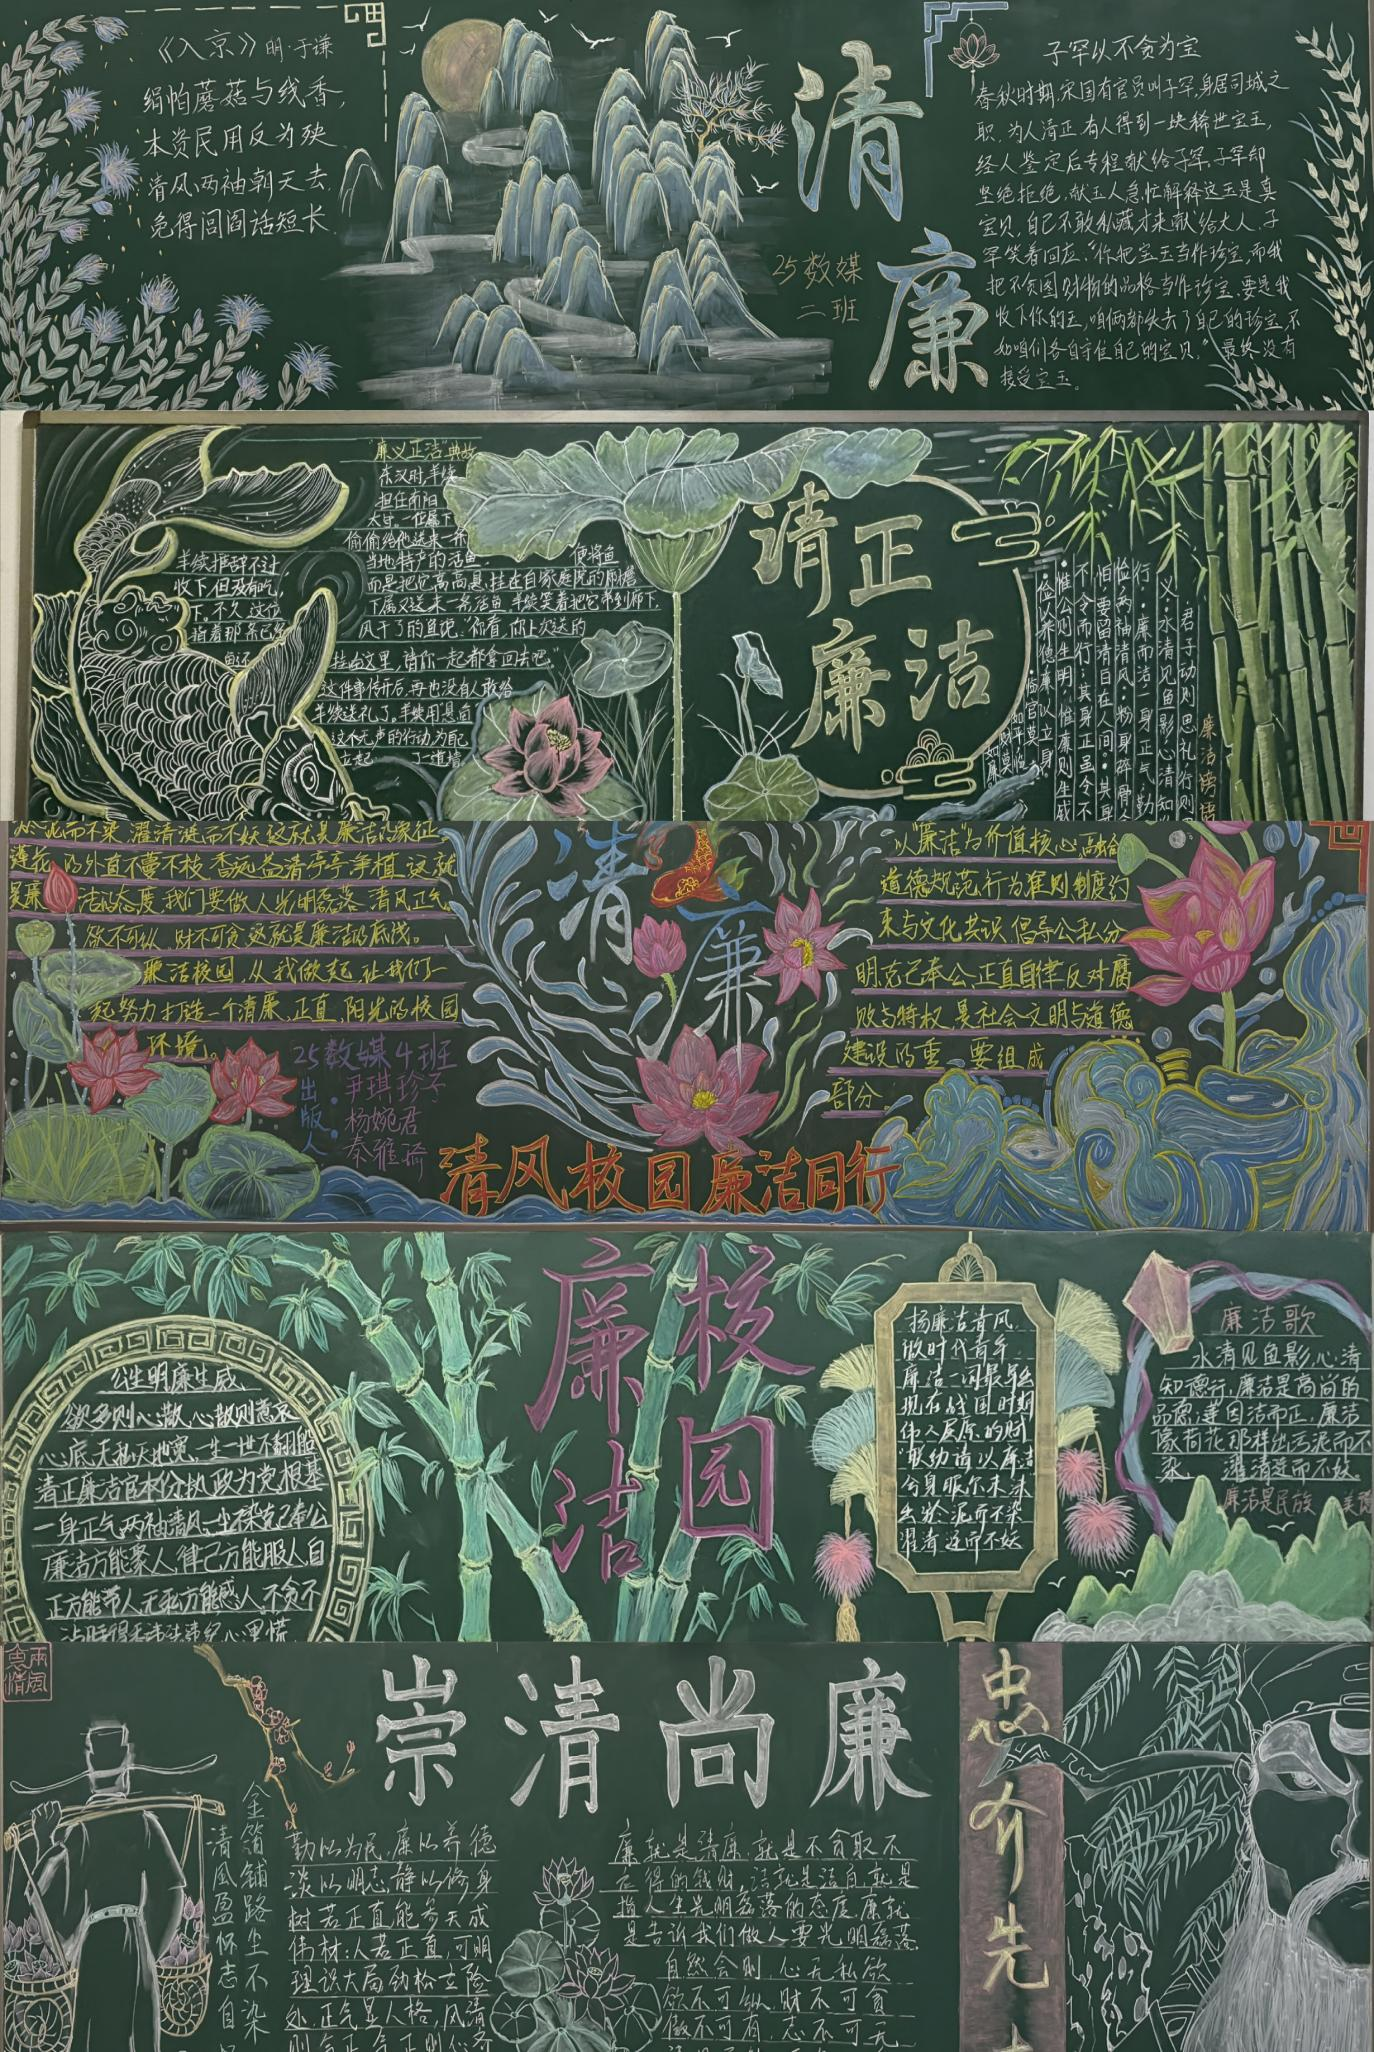 《入京》明·于谦
绢帕蘑菇与线香,
本资民用反为殃.
清风两袖朝天去,
免得闾阎话短长.
清
廉
25数媒
二班
子罕以不贪为宝
春秋时期,宋国有官员叫子罕,身居司城之
职,为人清正,有人得到一块稀世宝玉,
经人鉴定后专程献给子罕,子罕却
坚绝拒绝,献玉人急忙解释这玉是真
宝贝,自己不敢私藏才来献给大人,子
罕笑着回应:“你把宝玉当作珍宝,而我
把不贪图财物的品格当作珍宝,要是我
收下你的玉,咱俩都失去了自己的珍宝,不
如咱们各自守住自己的宝贝。”最终没有
接受宝玉。
“廉义正洁”典故
东汉时,羊续
担任南阳
太守,一位属下
偷偷给他送来一条
当地特产的活鱼,
羊续推辞不让
收下但没有吃,
便将鱼
而是把它高高悬挂在自家庭院的雨檐
下,不久,这位
下属又送来一条活鱼,羊续笑着把它带到师下,
指着那条已经
风干了的鱼说:“你看,你上次送的
鱼还
挂在这里,请你一起都拿回去吧。”
这件事传开后,再也没有人敢给
羊续送礼了,羊续用“悬鱼
这个无声的行动为自己
立起 了一道墙
清正
廉洁
廉洁谚语
君子动则思礼,行则
义·水清见鱼影,心清知
行·廉而洁一身正气,勤
俭两袖清风·粉身碎骨全
怕要留清白在人间·其身
不令而行;其身正虽令不
·惟公则生明,惟廉则生威
·俭以养德,廉以立身.
·临官莫
如平,临财莫
如廉
于此而不染,濯清涟而不妖,这就是廉洁的象征
莲花的外直不蔓不枝,香远益清,亭亭净植,这就
是廉洁的态度,我们要做人光明磊落,清风正气
欲不可纵,财不可贪,这就是廉洁的底线。
廉洁校园,从我做起,让我们一
起努力打造一个清廉,正直,阳光的校园
环境。
25数媒4班
出版人:
尹琪珍子
杨婉君
秦雅琦
清
廉
清风校园廉洁同行
以“廉洁”为价值核心,融合
道德规范,行为准则,制度约
束与文化共识,倡导公私分
明,克己奉公,正直自律,反对腐
败与特权,是社会文明与道德
建设的重要组成
部分。
公生明廉生威
欲多则心散,心散则志衰
心底无私天地宽,一生一世不翻船
清正廉洁官本分,执政为党根基
一身正气两袖清风一尘不染克己奉公
廉洁方能聚人,律己方能服人,自
正方能带人,无私方能感人,不贪不
廉
洁
校
园
扬廉洁清风
做时代青年
廉洁一词最早出
现在战国时期
伟人屈原的财
“联幼清以廉洁
兮身服尔未沫
出淤泥而不染
濯清涟而不妖
廉洁歌
水清见鱼影,心清
知德行,廉洁是高尚的
品德,莲因洁而正,廉洁
像荷花那样出污泥而不
染 濯清涟而不妖。
廉洁是民族 美德
两风
袁清
崇清尚廉
金箔铺路尘不染
清风盈怀志自
勤以为民,廉以养德
淡以明志,静以修身
树若正直,能参天成
伟材;人若正直,可明
理识大局,劲松立险
处,正气显人格,风清
则气正,气正则心齐
廉就是清廉,就是不贪取不
应得的钱财,洁就是洁白,就是
指人生光明磊落的态度,廉就
是告诉我们做人要光明磊落
自然合则,心无私欲
欲不可纵,财不可贪
做不可有,志不可无
忠介先